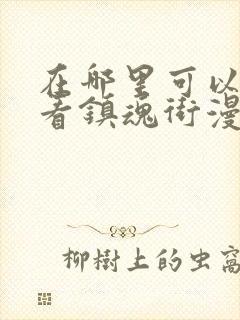 在哪里可以
看鎮魂街漫
柳樹上的虫窩